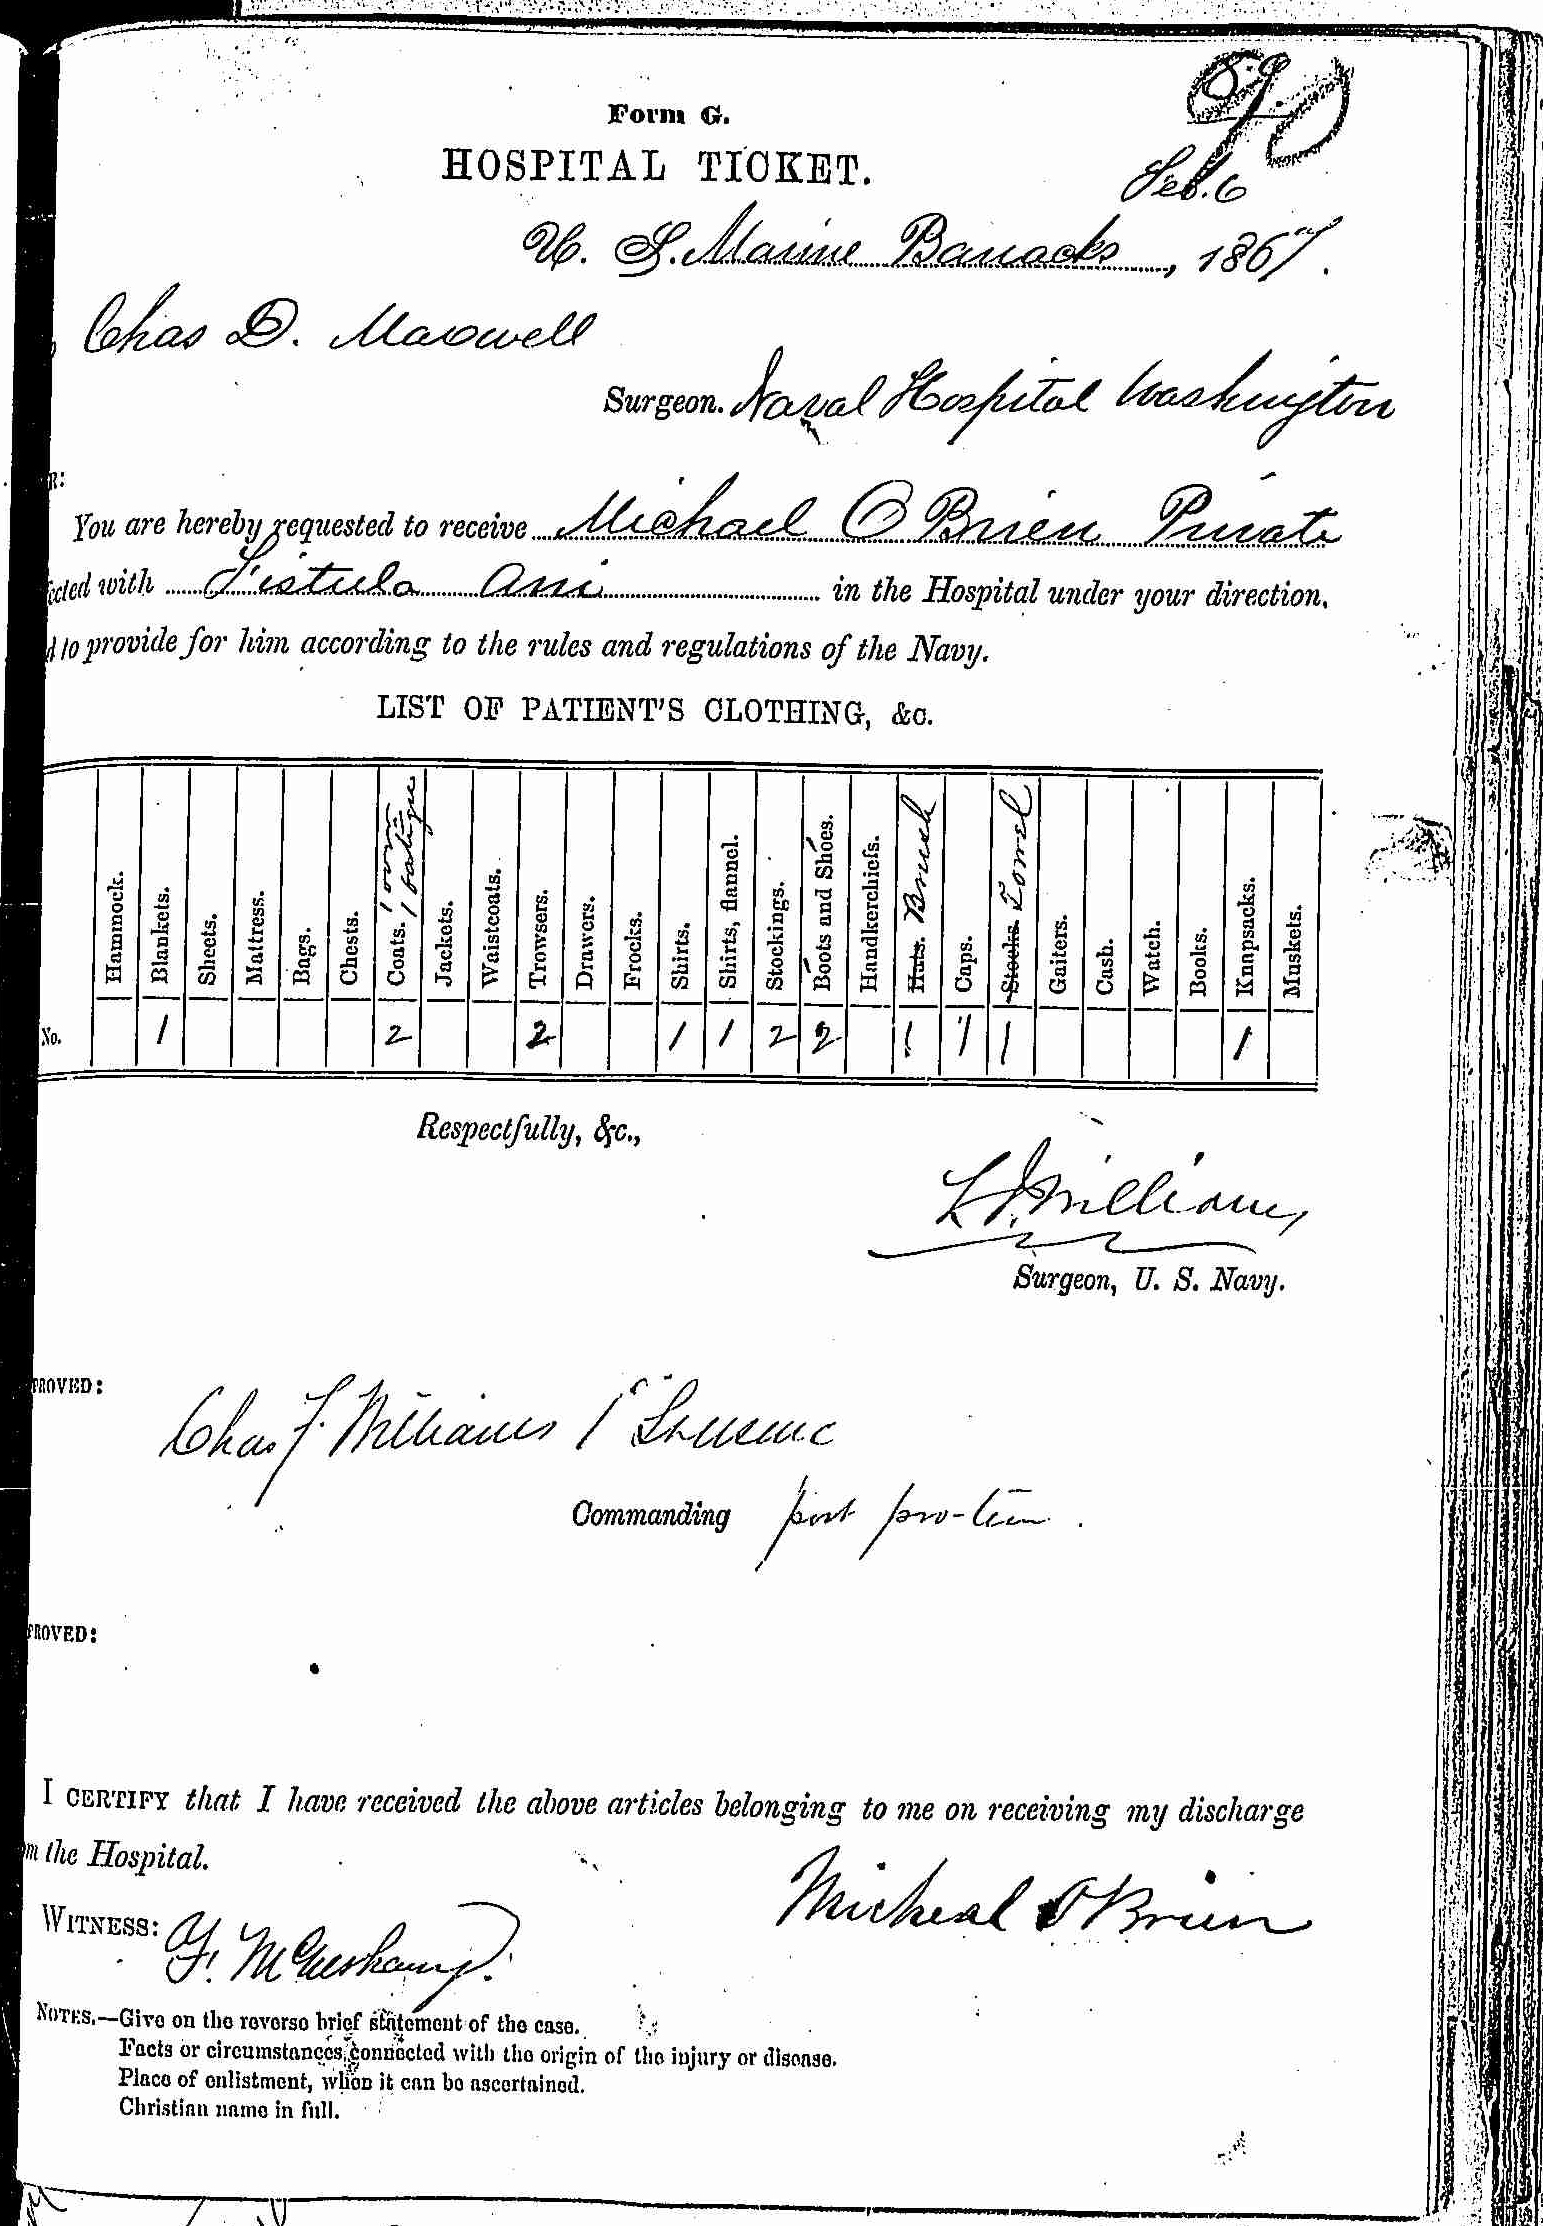 89
90
Form G.
HOSPITAL TICKET.
Feb. 6
U. S. Marine Barracks, 1867.
Chas D. Maxwell
Surgeon. Naval Hospital Washington
R:
You are hereby requested to receive Michael O Brien Private
ected with Fistula Ani in the Hospital under your direction,
d to provide for him according to the rules and regulations of the Navy.
LIST OF PATIENT'S CLOTHING, &c.
Hammock. Blankets. Sheets. Mattress. Bags. Chests. Coats. 1 over 1 fatigue Jackets. Waistcoats. Trowsers. Drawers. Frocks. Shirts. Shirts, flannel. Stockings. Boots and Shoes. Handkerchiefs. Hats. Brush Caps. Stocks. Towel Gaiters. Cash. Watch. Books. Knapsacks. Muskets.
No. 1 2 2 1 1 2 2 1 1 1 1
Respectfully, &c.,
L J Williams
Surgeon, U. S. Navy.
PROVED:
Chas F. Williams 1st Lt USMC
Commanding post pro-tem.
PROVED:
I CERTIFY that I have received the above articles belonging to me on receiving my discharge
m the Hospital.
Micheal O Brien
WITNESS: F.
NOTES.—Give on the reverse brief statement of the case.
Facts or circumstances connected with the origin of the injury or disease.
Place of enlistment, when it can be ascertained.
Christian name in full.